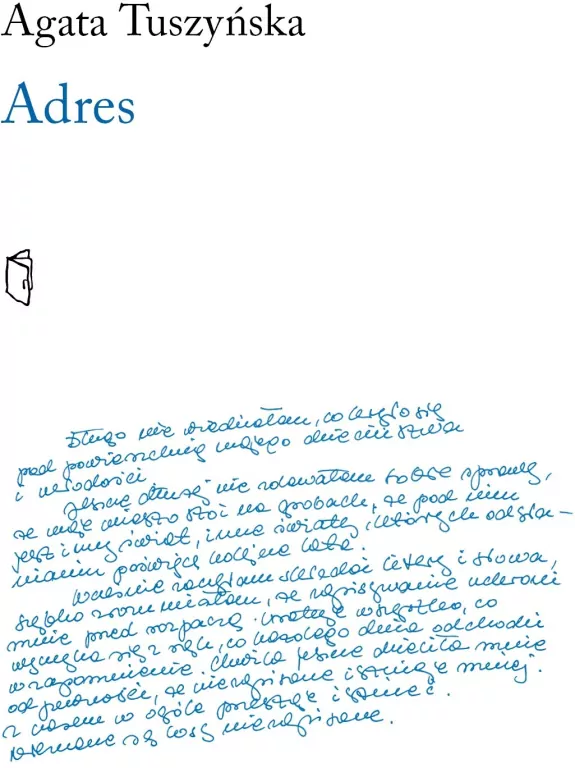 Agata Tuszyńska
Adres
Długo nie wiedziałam, co kryło się
pod powierzchnią mojego dzieciństwa
i młodości.
Jeszcze dłużej nie zdawałam sobie sprawy,
że moje miasto stoi na grobach, że pod nim
jest inny świat, inne światy, których odsła-
nianiu poświęcę kolejne lata.
Właśnie zaczęłam składać litery i słowa,
szybko zrozumiałam, że zapisywanie uchroni
mnie przed rozpaczą. Uratuje wszystko, co
wymyka się z rąk, co każdego dnia odchodzi
w zapomnienie. Chwila jeszcze dzieliła mnie
od pewności, że niezapisane istnieje mniej.
z czasem w ogóle przestaje istnieć.
są losy niezapisane.